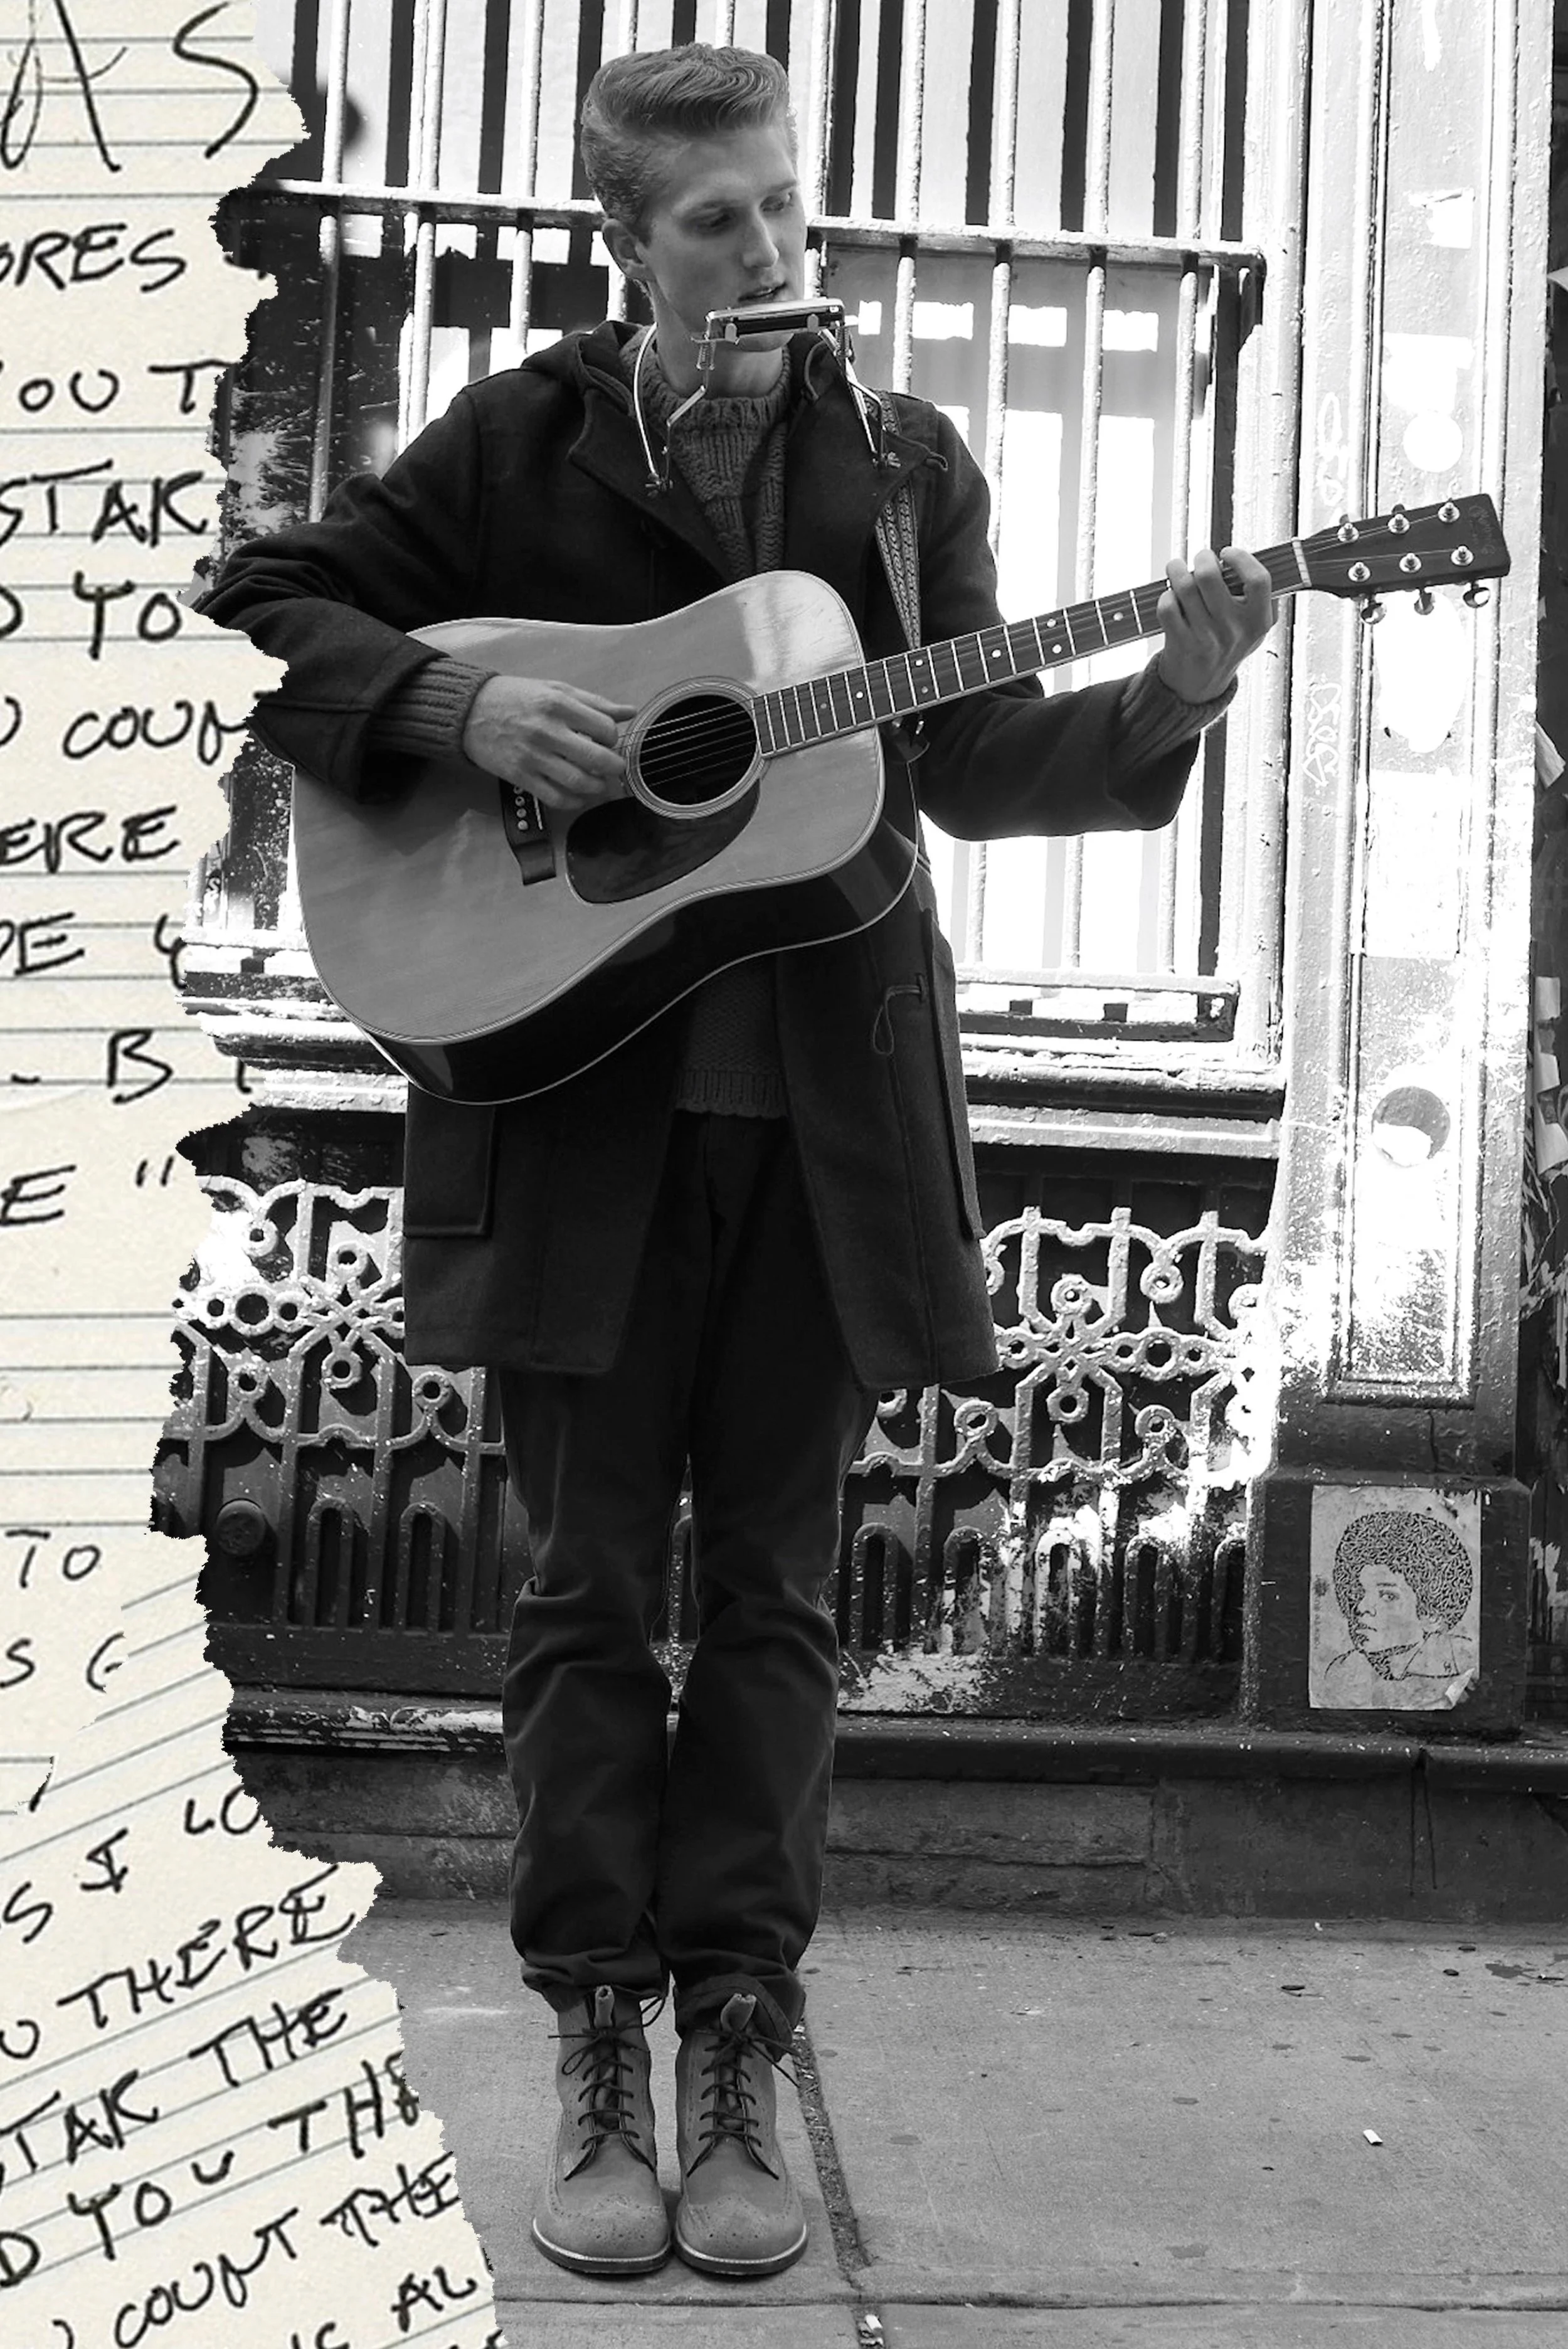 AS
ORES
YOU T
STAK
D YO
U COUN
ERE
DE Y
- B
E "
TO
S
S I LO
U THERE
STAK THE
D YOU THE
COUNT THE
IC AL